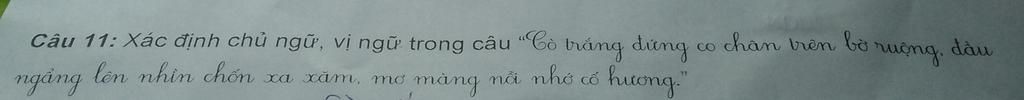 Câu 11: Xác định chủ ngữ, vị ngữ trong câu “Cò trắng đứng co chân trên bờ ruộng, đầu
ngẩng lên nhìn chốn xa xăm, mơ màng nỗi nhớ cố hương.”